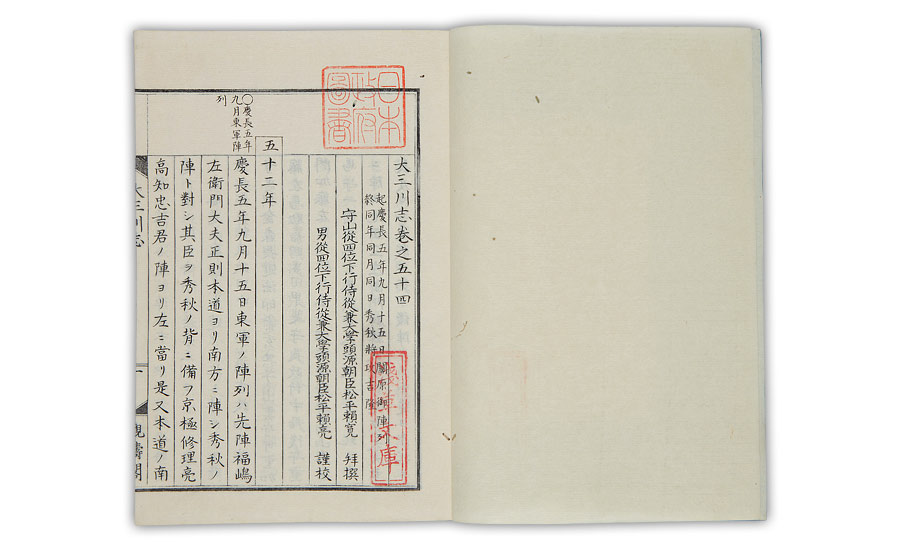 日本
政府
圖書
大三川志卷之五十四
起慶長五年九月十五日關原御陣列
終同年同月同日秀秋將攻吉隆
守山從四位下行侍從兼大學頭源朝臣松平賴寬 拜撰
男從四位下行侍從兼大學頭源朝臣松平賴亮 謹校
淺草文庫
五十二年
○慶長五年
九月東軍陣
列
慶長五年九月十五日東軍ノ陣列ハ先陣福嶋
左衛門大夫正則本道ヨリ南方ニ陣シ秀秋ノ
陣ト對シ其臣ヲ秀秋ノ背ニ備フ京極修理亮
高知忠吉君ノ陣ヨリ左ニ當リ是又本道ノ南
大三川志
觀濤閣